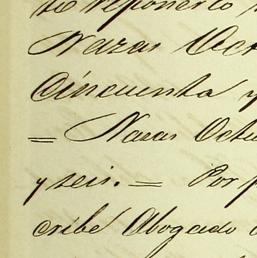 reponerlo
Nazas Oct
Cincuenta y
= Nazas Octu
y seis. = Por
cribe Abogado